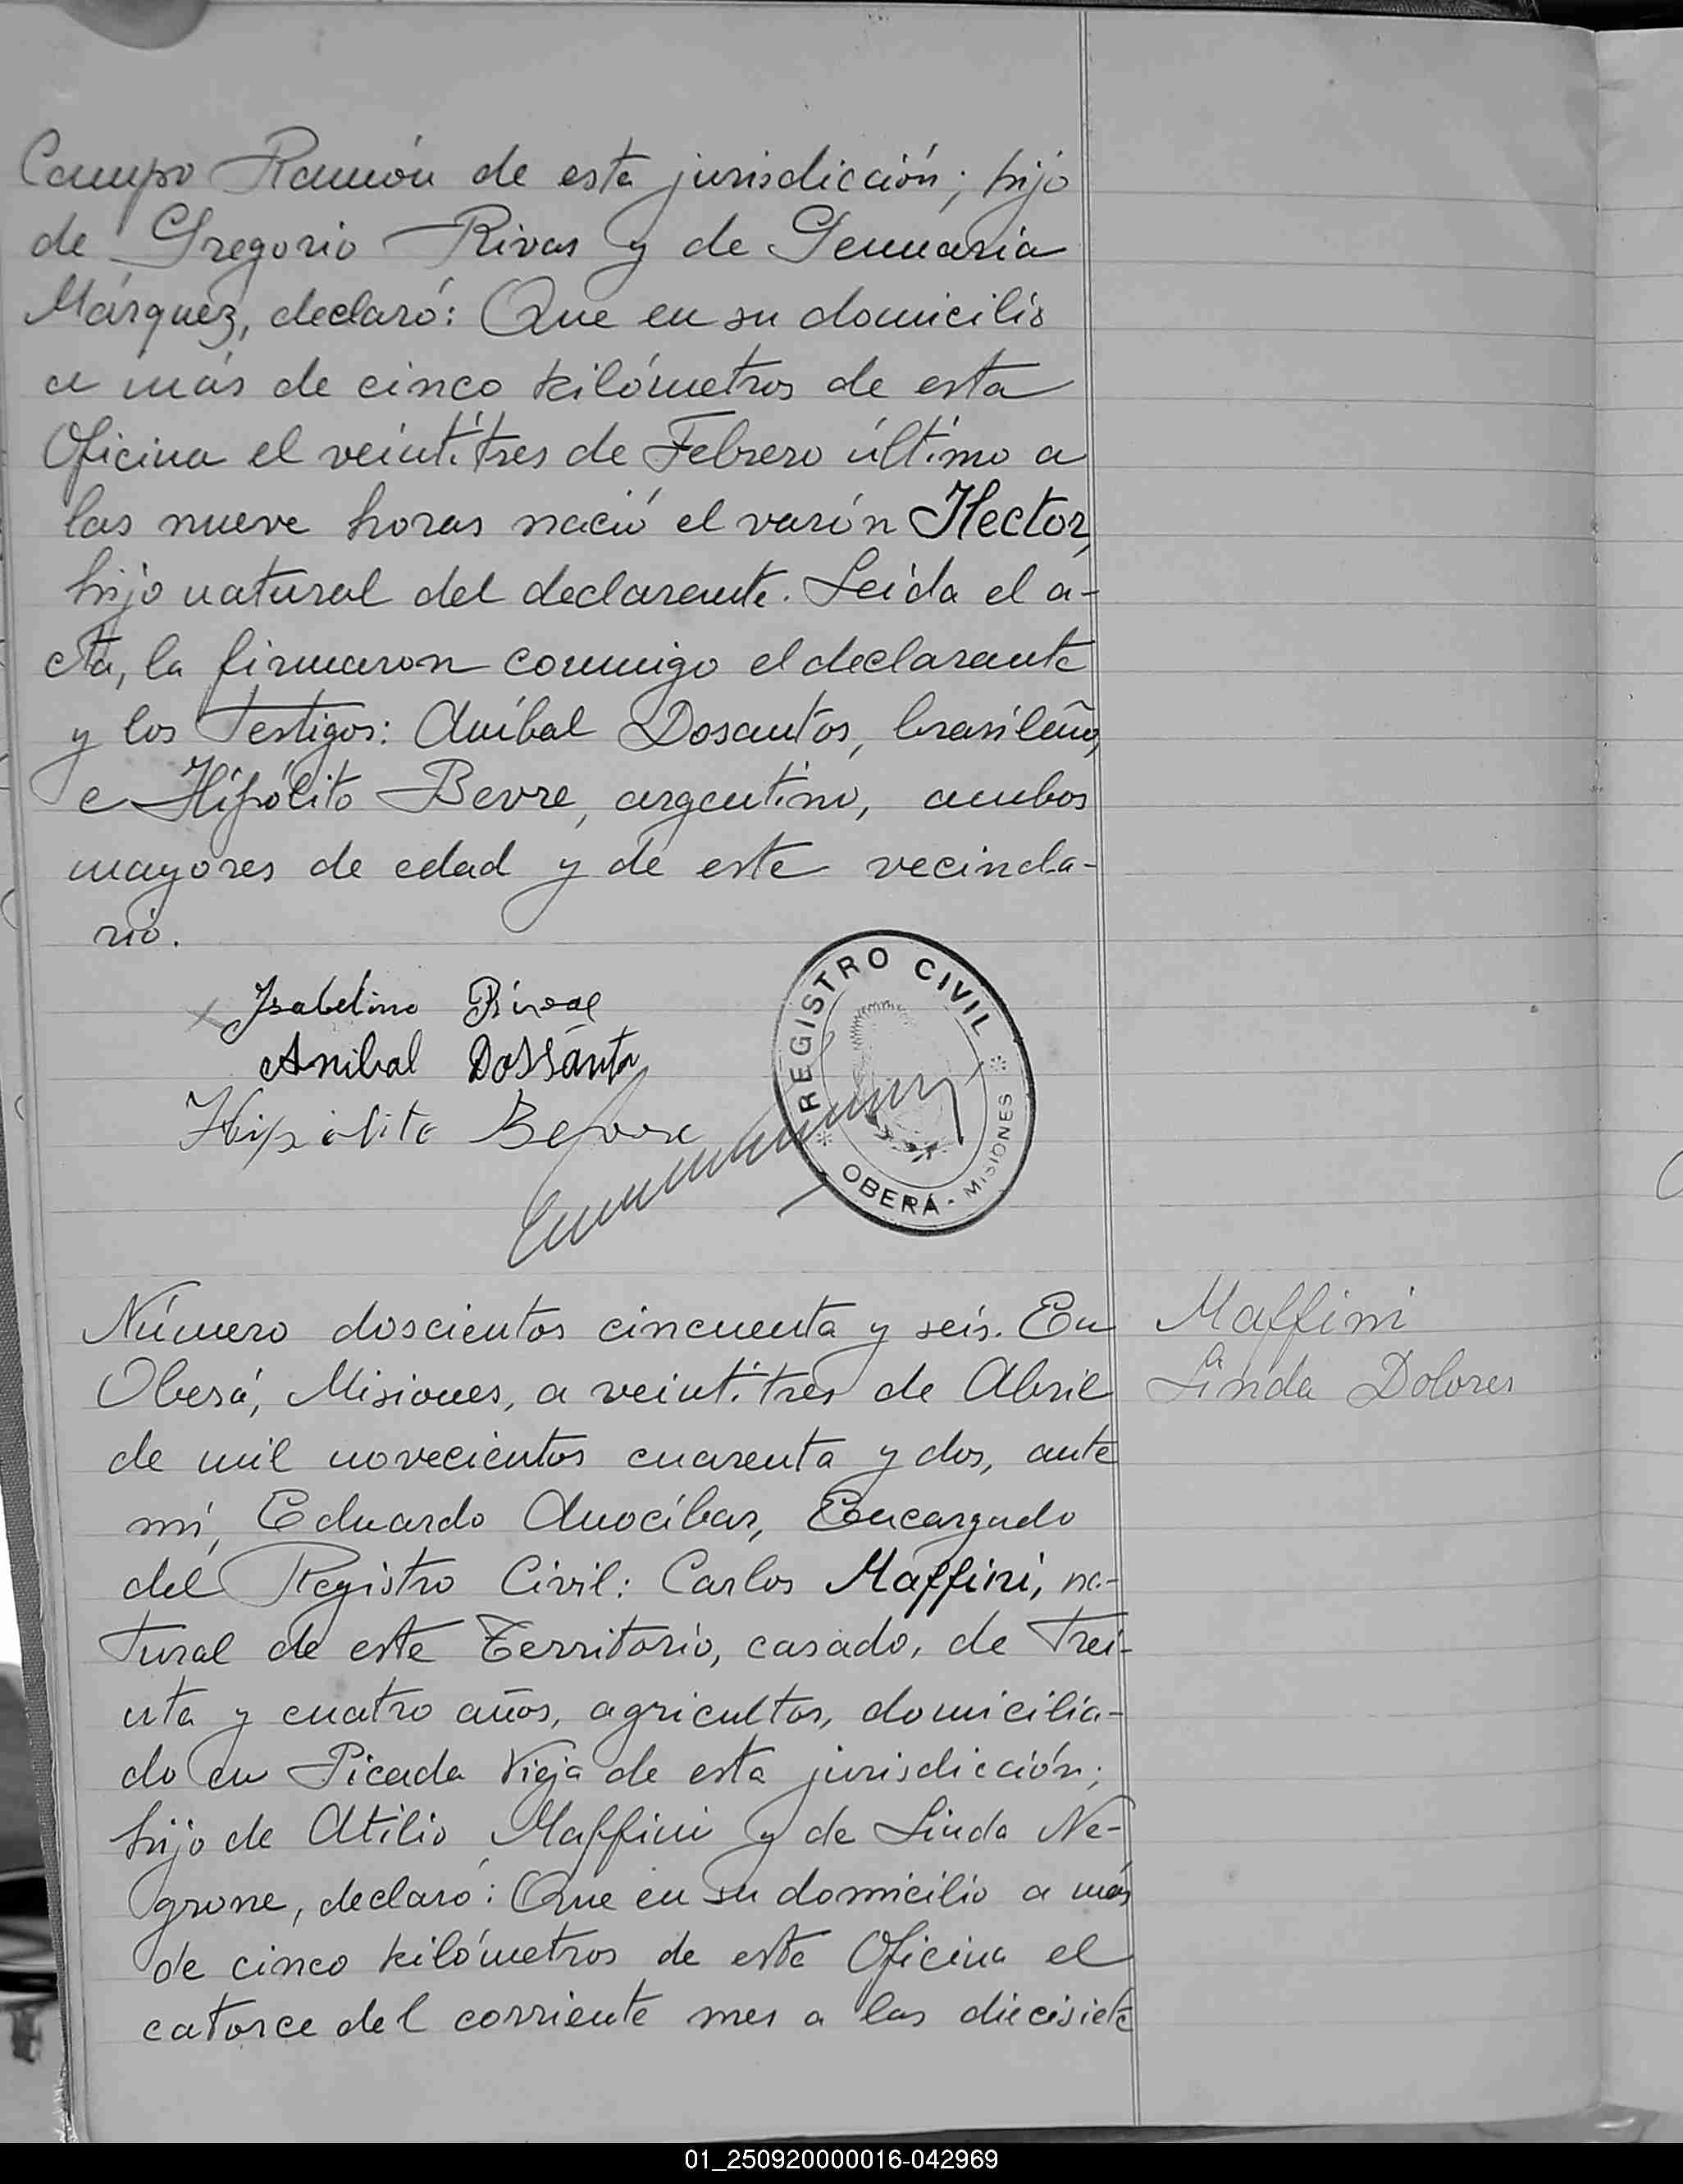 Campo Ramón de esta jurisdicción; hijo
de Gregorio Rivas y de Genuaria
Márquez, declaró: Que en su domicilio
a más de cinco kilómetros de esta
Oficina el veintitres de Febrero último a
las nueve horas nació el varón Hector,
hijo natural del declarante. Leida el a-
cta, la firmaron conmigo el declarante
y los Testigos: Aníbal Dosantos, brasileño,
e Hipólito Bevre, argentino, ambos
mayores de edad y de este vecinda-
rio.
Isabelino Rivas
Anibal DosSanto
Hipolito
REGISTRO CIVIL
OBERÁ - MISIONES
Número doscientos cincuenta y seis. En
Oberá, Misiones, a veintitres de Abril
de mil novecientos cuarenta y dos, ante
mí, Eduardo Anocíbar, Encargado
del Registro Civil: Carlos Maffini, na-
tural de este Territorio, casado, de Trei-
nta y cuatro años, agricultor, domicilia-
do en Picada Vieja de esta jurisdicción;
hijo de Atilio Maffini y de Linda Ne-
grone, declaró: Que en su domicilio a más
de cinco kilómetros de esta Oficina el
catorce del corriente mes a las diecisiete
Maffini
Linda Dolores
01_250920000016-042969